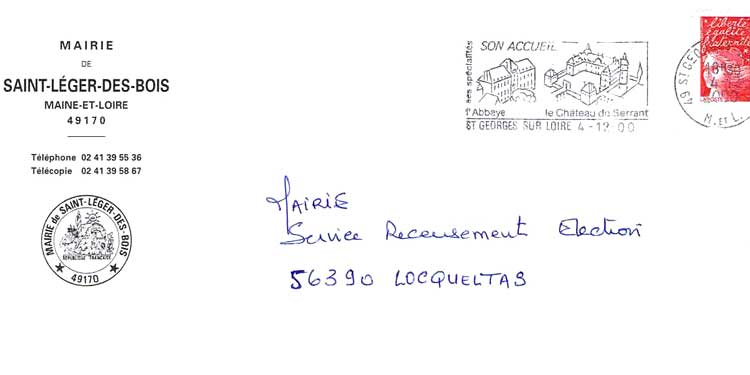 MAIRIE
DE
SAINT-LÉGER-DES-BOIS
MAINE-ET-LOIRE
49170
Téléphone 02 41 39 55 36
Télécopie 02 41 39 58 67
MAIRIE de SAINT-LÉGER-DES-BOIS
RÉPUBLIQUE FRANÇAISE
49170
ses spécialités
SON ACCUEIL
l'Abbaye le Château de Serrant
ST GEORGES SUR LOIRE 4-12 00
liberté
égalité
fraternité
49 ST GEO
M. ET L.
MAIRIE
Service Recensement Election
56390 LOCQUELTAS